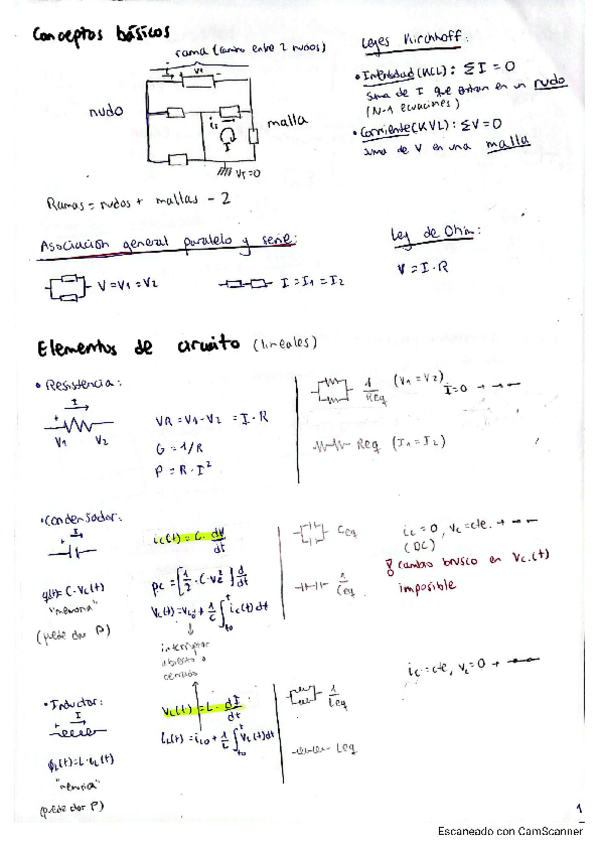 Conceptos básicos
rama (camino entre 2 nudos)
nudo
malla
I
V1
i1
I
VT=0
Ramas = nudos + mallas - 2
Leyes Kirchhoff:
• Intensidad (KCL): ΣI = 0
suma de I que entran en un nudo
(N-1 ecuaciones)
• Corriente (KVL): ΣV = 0
suma de V en una malla
Asociación general paralelo y serie:
V = V1 = V2
I = I1 = I2
Ley de Ohm:
V = I · R
Elementos de circuito (lineales)
• Resistencia:
I
+
V1 V2
VR = V1 - V2 = I · R
G = 1/R
P = R · I²
1/Req (V1 = V2)
I = 0 →
Req (I1 = I2)
• Condensador:
I
+
q(t) = C · Vc(t)
"memoria"
(puede dar P)
ic(t) = C · dV/dt
pc = [1/2 · C · vc²] d/dt
Vc(t) = Vc0 + 1/C ∫ ic(t) dt
t
t0
interruptor
abierto o
cerrado
Ceq
1/Ceq
ic = 0, vc = cte. →
(DC)
cambio brusco en Vc(t)
imposible
• Inductor:
I
+
ϕL(t) = L · iL(t)
"memoria"
(puede dar P)
VL(t) = L · dI/dt
iL(t) = iL0 + 1/L ∫ VL(t) dt
t
t0
1/Leq
Leq
iL = cte, vL = 0 →
1
Escaneado con CamScanner